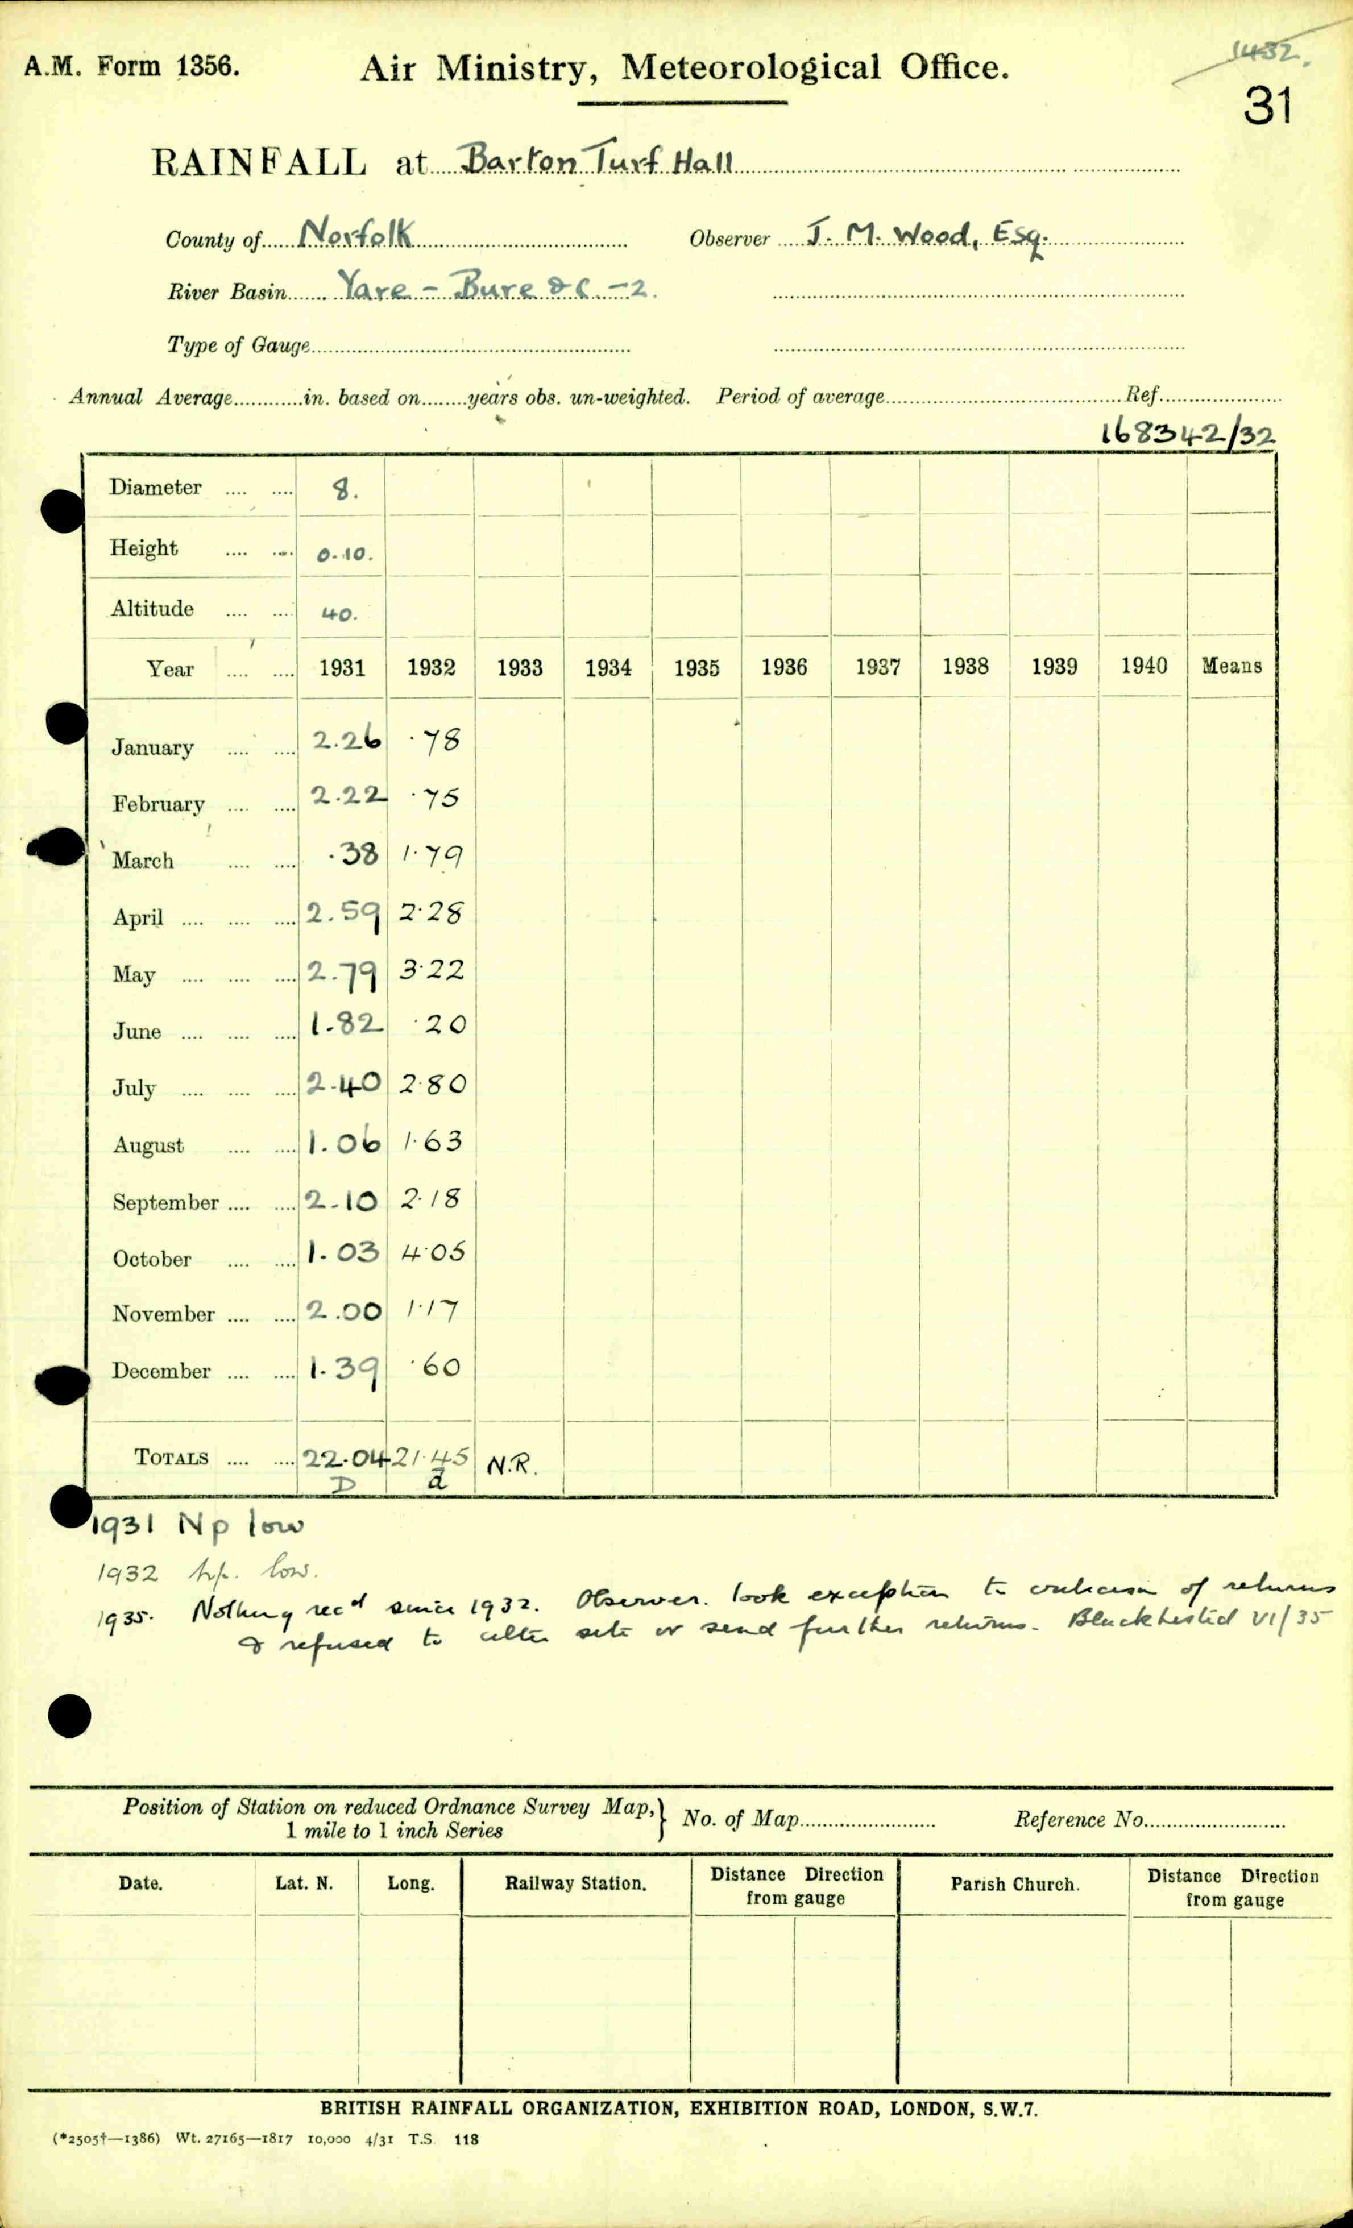 A.M. Form 1356.
Air Ministry, Meteorological Office.
1432.
31
RAINFALL at Barton Turf Hall
County of Norfolk Observer J. M. Wood, Esq.
River Basin Yare - Bure &c. -2.
Type of Gauge
Annual Average in. based on years obs. un-weighted. Period of average Ref.
168342/32
Diameter 8.
Height 0.10.
Altitude 40.
Year 1931 1932 1933 1934 1935 1936 1937 1938 1939 1940 Means
January 2.26 .78
February 2.22 .75
March .38 1.79
April 2.59 2.28
May 2.79 3.22
June 1.82 .20
July 2.40 2.80
August 1.06 1.63
September 2.10 2.18
October 1.03 4.05
November 2.00 1.17
December 1.39 .60
TOTALS 22.04 21.45 N.R.
D d
1931 Np low
1932 Np. low.
1935. Nothing recd since 1932. Observer took exception to criticism of returns
& refused to alter site or send further returns. Blacklisted VI/35
Position of Station on reduced Ordnance Survey Map, } No. of Map Reference No.
1 mile to 1 inch Series
Date. Lat. N. Long. Railway Station. Distance Direction from gauge Parish Church. Distance Direction from gauge
BRITISH RAINFALL ORGANIZATION, EXHIBITION ROAD, LONDON, S.W.7.
(*2505†—1386) Wt. 27165—1817 10,000 4/31 T.S. 118